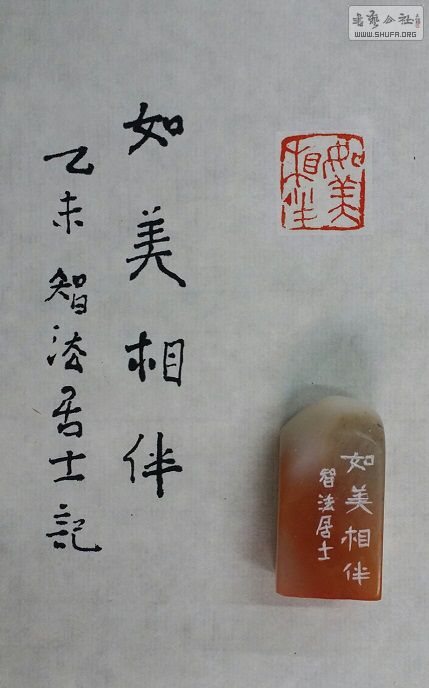 书艺公社
WWW.SHUFA.ORG
如美相伴
如美相伴
乙未智法居士記
如美相伴
智法居士